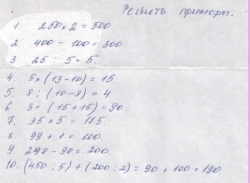 Решить примеры.
1. 250 × 2 = 500
2. 400 - 100 = 300.
3. 25 : 5 = 5.
4. 5 × (13-10) = 15
5. 8 : (10-8) = 4
6. 3 × (15+15) = 90.
7. 35 × 5 = 175.
8. 99 + 1 = 100.
9. 298 - 98 = 200.
10. (450 : 5) + (200 : 2) = 90 + 100 = 190.